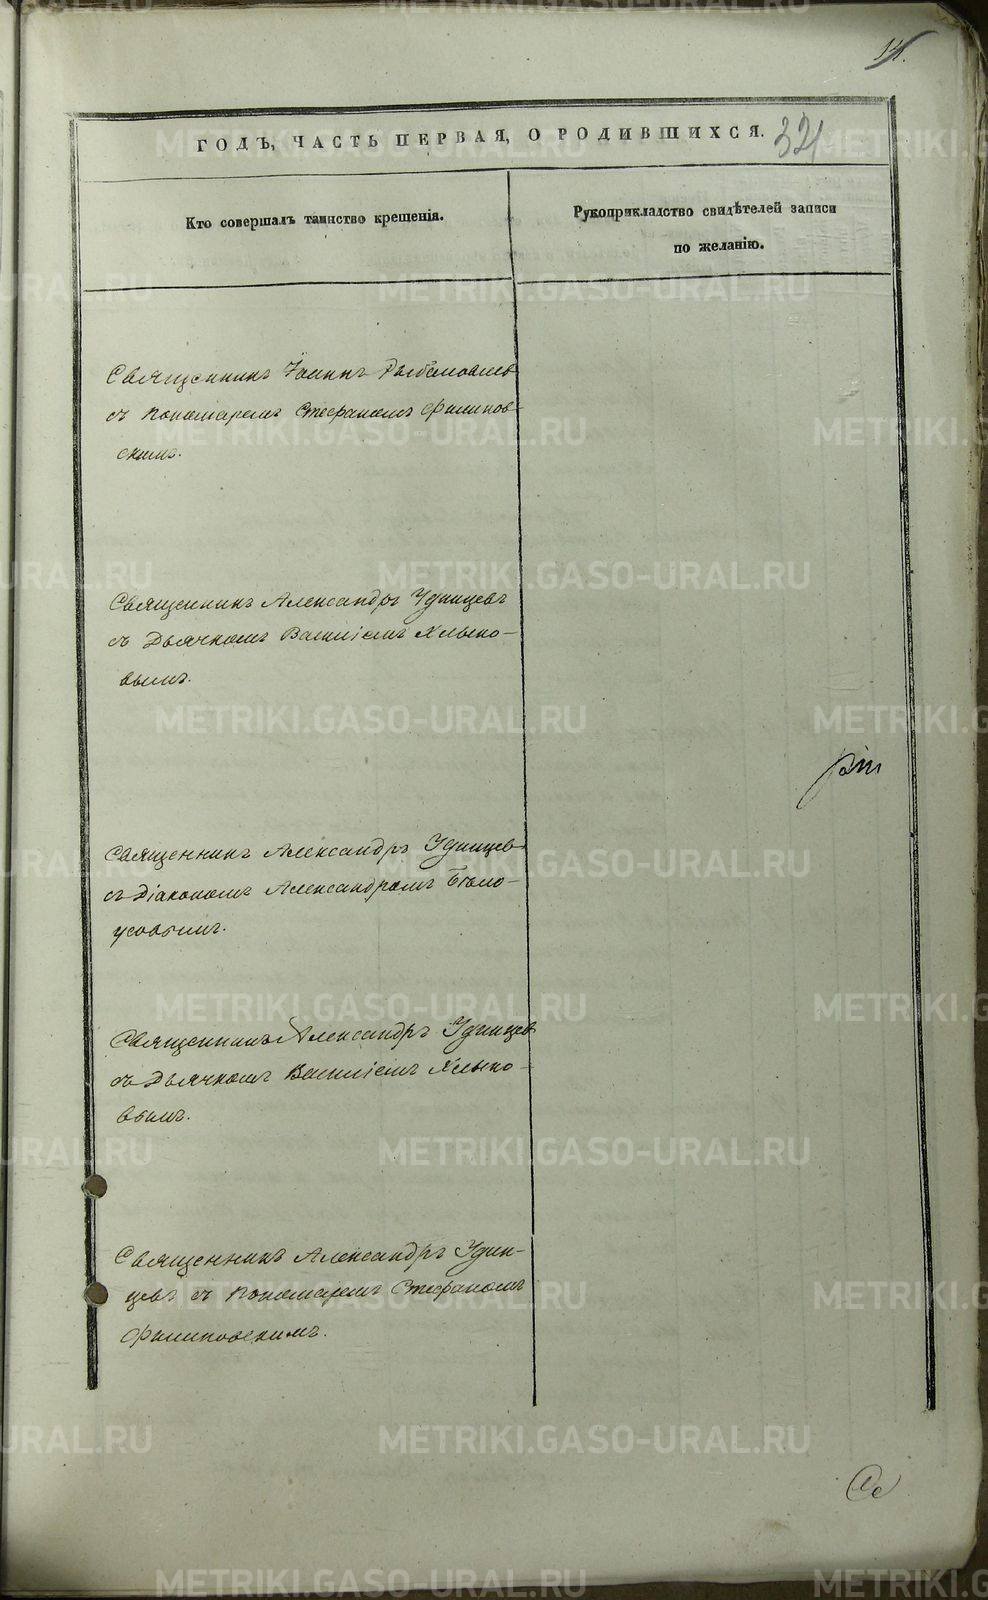 14.
ГОДЪ, ЧАСТЬ ПЕРВАЯ, О РОДИВШИХСЯ.
321
Кто совершалъ таинство крещенія.
Рукоприкладство свидѣтелей записи
по желанію.
Священникъ Іоаннъ
съ Пономаремъ Стефаномъ Филипов-
скимъ.
Священникъ Александръ Удинцевъ
съ Дьячкомъ Василіемъ Хлыно-
вымъ.
Священникъ Александръ Удинцевъ
съ Діакономъ Александромъ Бѣло-
усовымъ.
Священникъ Александръ Удинцевъ
съ Дьячкомъ Василіемъ Хлыно-
вымъ.
Священникъ Александръ Удин-
цевъ съ Пономаремъ Стефаномъ
Филиповскимъ.
METRIKI.GASO-URAL.RU